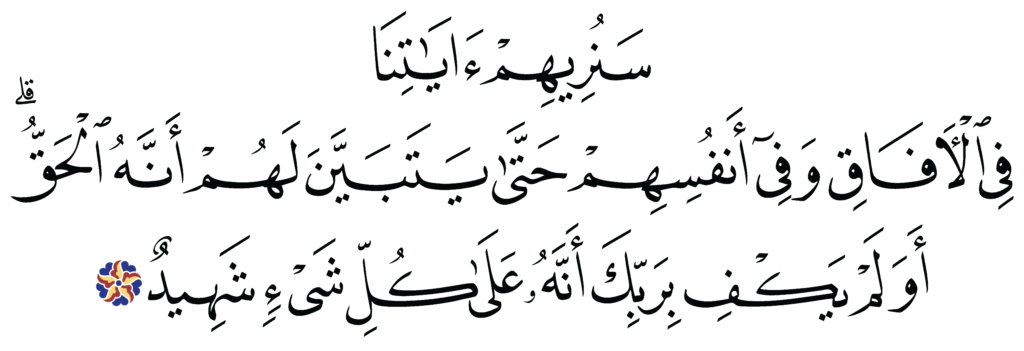 سَنُرِيهِمْ ءَايَٰتِنَا
فِى ٱلْـَٔافَاقِ وَفِىٓ أَنفُسِهِمْ حَتَّىٰ يَتَبَيَّنَ لَهُمْ أَنَّهُ ٱلْحَقُّ ۗ
أَوَلَمْ يَكْفِ بِرَبِّكَ أَنَّهُۥ عَلَىٰ كُلِّ شَىْءٍ شَهِيدٌ